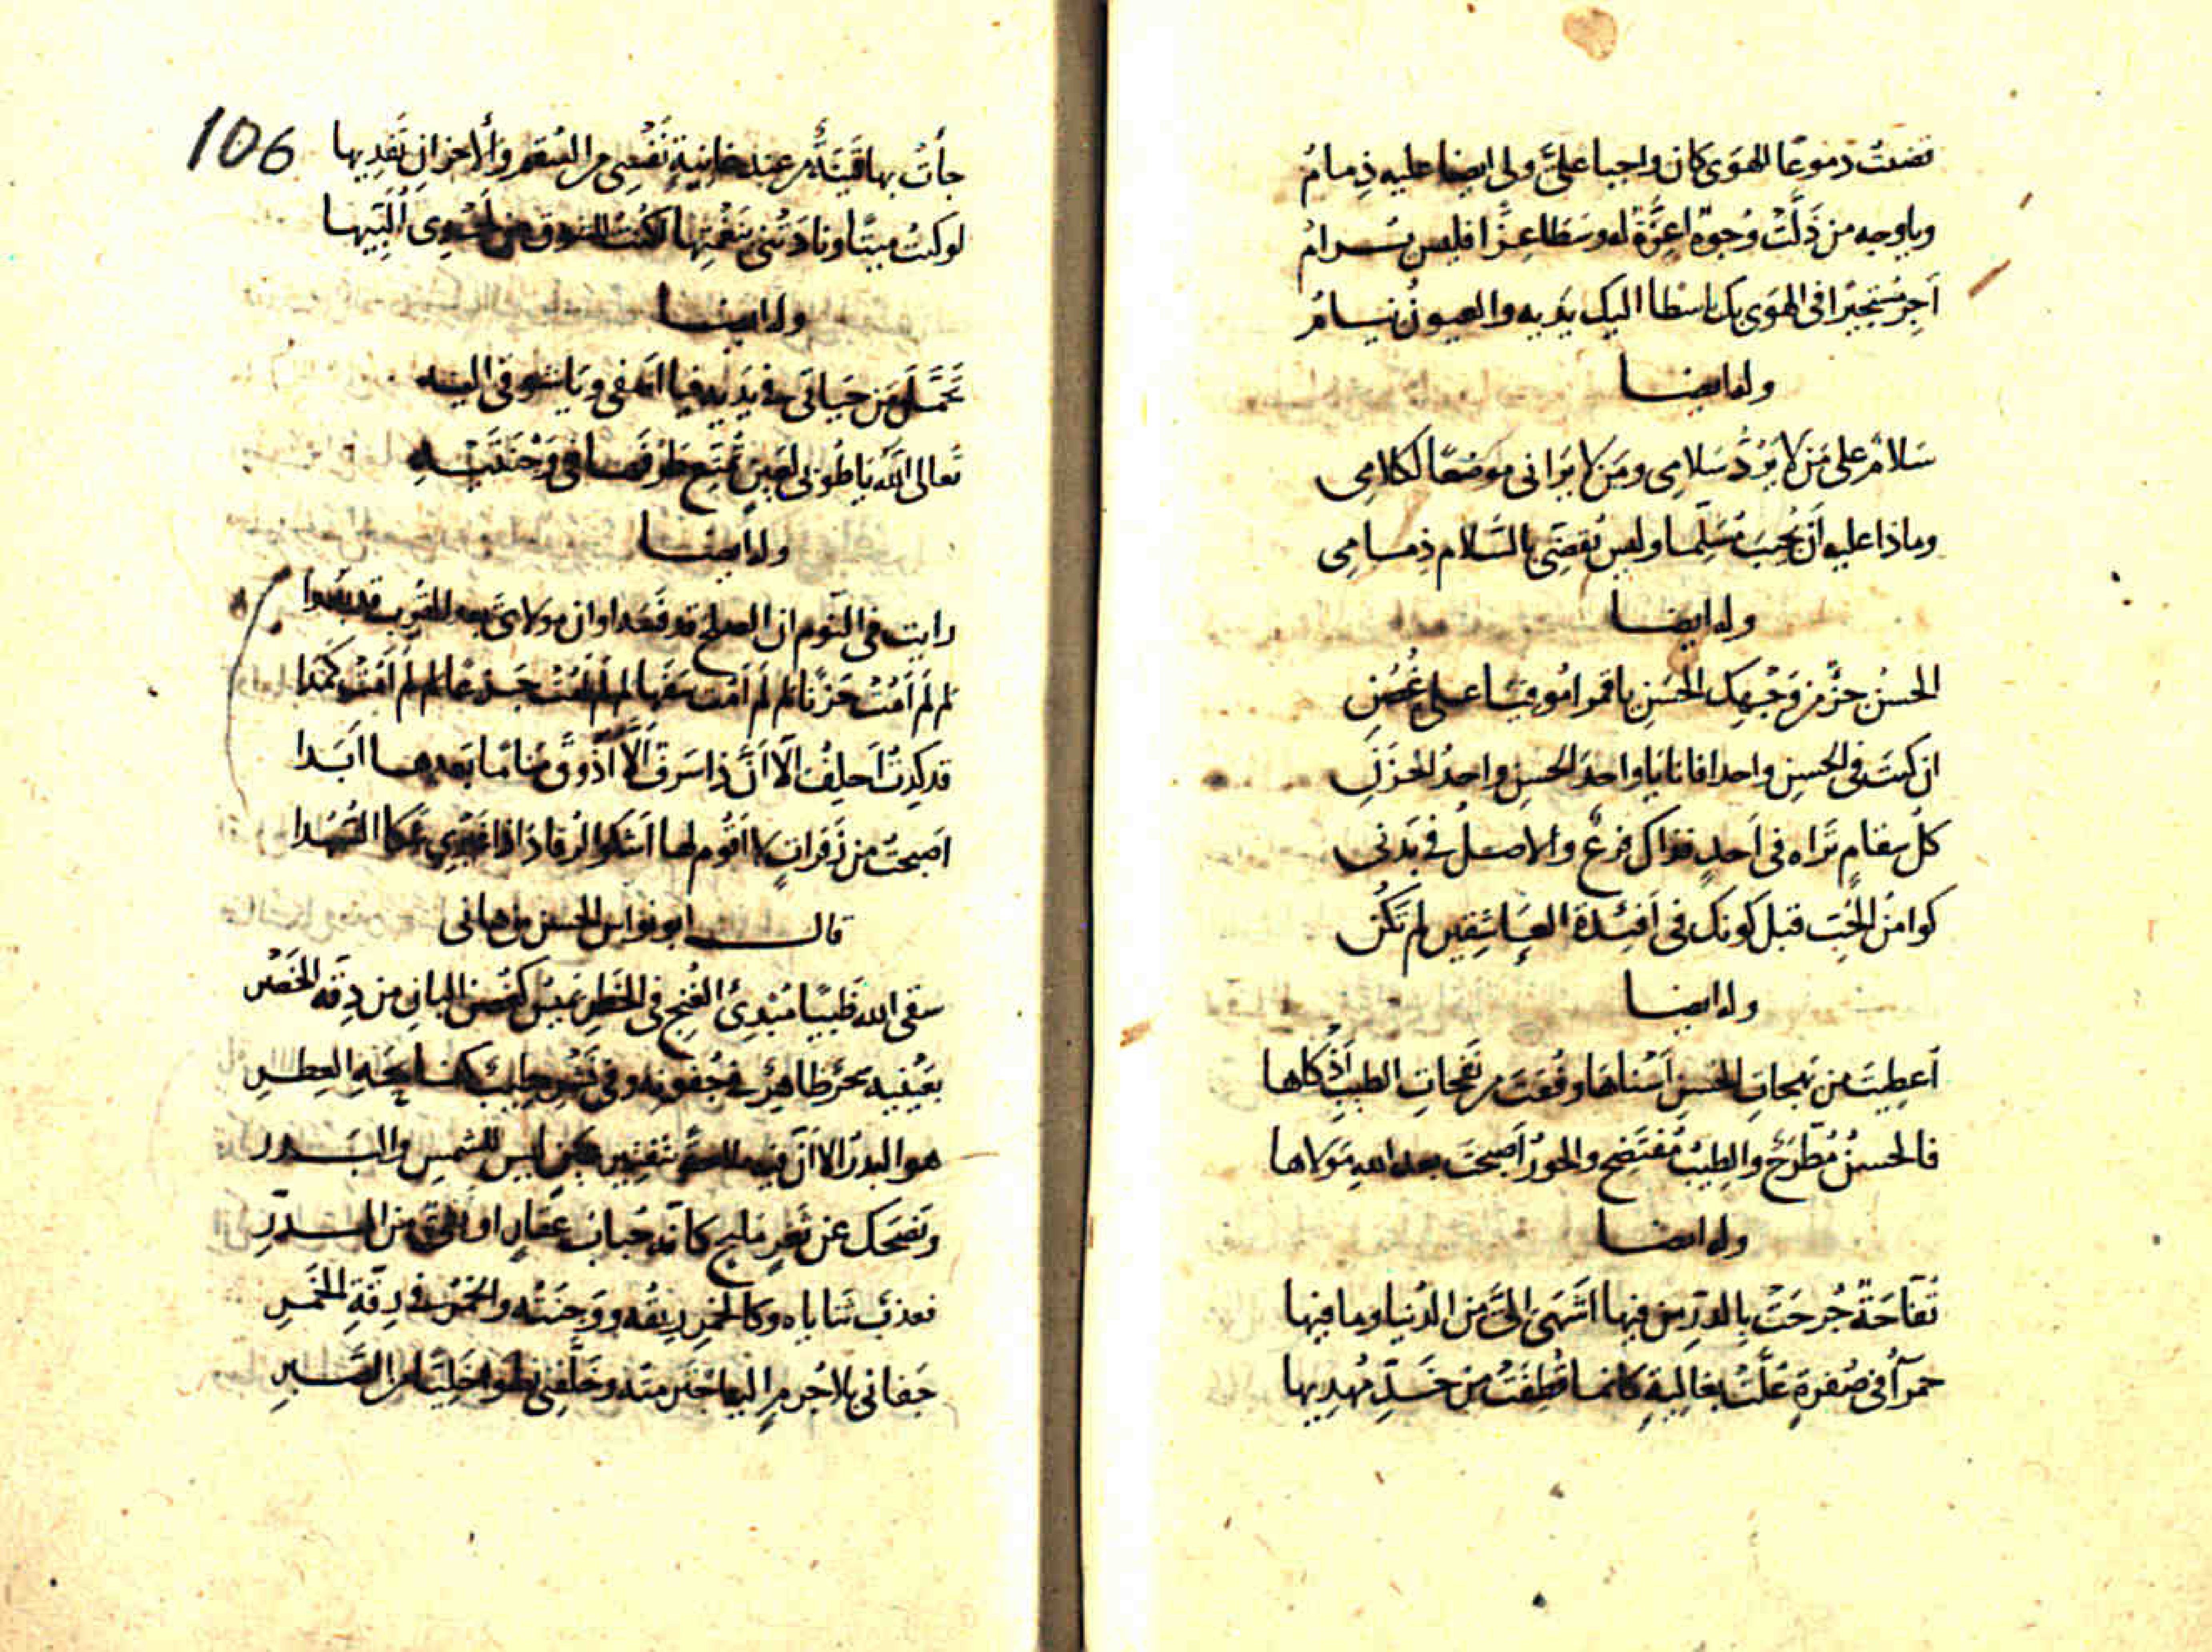 نضت دموعًا للهوى كان واجبا علىَّ ولى ايضا عليه ذِمامُ
وياوجه من ذَلَّتْ وُجوهٌ اعِزَّةٌ له وسَطَا عِزًّا فليس يُرامُ
اَجِرْ مُستجيرًا فى الهَوى بك باسطا اليك يَديه والعيونُ نيامُ
وله ايضا
سَلامٌ على مَن لا يَرُدُّ سَلامِى ومَن لا يَرَانى موضعًا لكلامِى
وماذا عليه أن يُجيبَ مُسَلِّما وليس يُقضَّى بالسَّلام ذِمامِى
وله ايضا
الحسنُ جزءٌ من وَجْهِكِ الحَسَنِ يا قمرا مُوفيًا على غُصُنِ
ان كنتَ فى الحسنِ واحدا فانا يا واحدَ الحسنِ واحدُ الحَزَنِ
كلُّ سقامٍ تَراه فى اَحدٍ فذاك فرعٌ والاصلُ فى بَدَنى
كوامنُ الحُبّ قبل كَونك فى اَفئدةِ العاشِقين لم تَكُنِ
وله ايضا
اُعطِيتَ من بَهجاتِ الحُسنِ اَسْناها وفُقتَ من نَفحاتِ الطيبِ اَذْكاها
فالحسنُ مُطّرَحٌ والطيبُ مُفتَضحٌ والحورُ اَصبحتَ بعد الله مَولاها
وله ايضا
تُفّاحَةٌ جُرحَتْ بالدرِّ من فيها اشْهَى الىَّ من الدُنيا وما فيها
حمرآء فى صُفرةٍ عُلَّتْ بغاليةٍ كانما قُطِفَتْ من خَدِّ مُهديها
106
جأت بها قَينَةٌ من عند غانيةٍ نَفسِى من السُقم والاحزانِ تَفديها
لو كنتُ ميتًا ونادَتْنى بنَغْمتِها لكُنتُ للشوق من لَحْدِى اُلَبّيها
وله ايضا
تَحَمَّلَ مَن حَياتى فى يَديهِ فيا اسَفى ويَا شَوقى اليه
تعالى اللّه يا طُوبى لعَينٍ تُمتِّع طَرْفها فى وَجْنتَيهِ
وله ايضا
رايت فى النوم ان الصلح قد فَسَدا وان مولاىَ بعد القُرب قد بَعُدا
لِم لَم اَمُتْ حَزَنًا لم لَم اَمُت سَفَها لم لم اَمُتْ جَزعًا لم لم اَمُتْ كَمَدا
قد كِدتُ اَحلِفُ الّا اَنَّ ذا سَرَفٌ اَلّا اَذُوقَ مَنامًا بعدها اَبَدا
اَصبحتُ من زَفَراتٍ لا اَقُوم لها اَشكو الرُقادَ اذا غَيْرِى شَكا السُهُدا
قال ابو نواس الحسن بن هانى
سقى الله ظَبيًا مُبْدِئَ الغُنج فى الخَطْرِ يَميسُ كغُصن البانِ من دِقّه الخَصْر
بعَينيه سِحرٌ ظاهرٌ فى جُفونه وفى نَشْرِه طِيبٌ كفائحة العِطرِ
هو البدرُ الا اَنّ فيه ملاحةً بتَفتير لحظٍ ليس للشمسِ والبَدر
وتَضحَك عن ثَغرٍ مَليح كانّه حَبابُ عُقارٍ او نقىٌّ من الدرِّ
فعَذبٌ ثَناياه وكالخمر رِيقُه ووجنَتُه والخمرُ فى رِقّةِ الخَمرِ
جَفانى بلا جُرمٍ اليه اجتَرمتُه وخَلَّفنى نِضوًا خَليًا من الصَبرِ